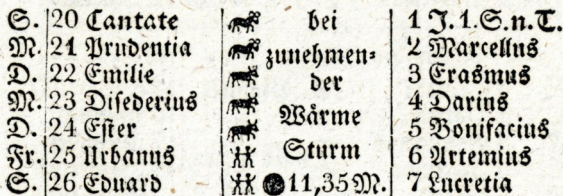 S. 20 Cantate bei 1 J. 1. S. n. T.
M. 21 Prudentia zunehmen= 2 Marcellus
D. 22 Emilie der 3 Erasmus
M. 23 Disederius Wärme 4 Darius
D. 24 Ester 5 Bonifacius
Fr. 25 Urbanus Sturm 6 Artemius
S. 26 Eduard 11,35M. 7 Lucretia